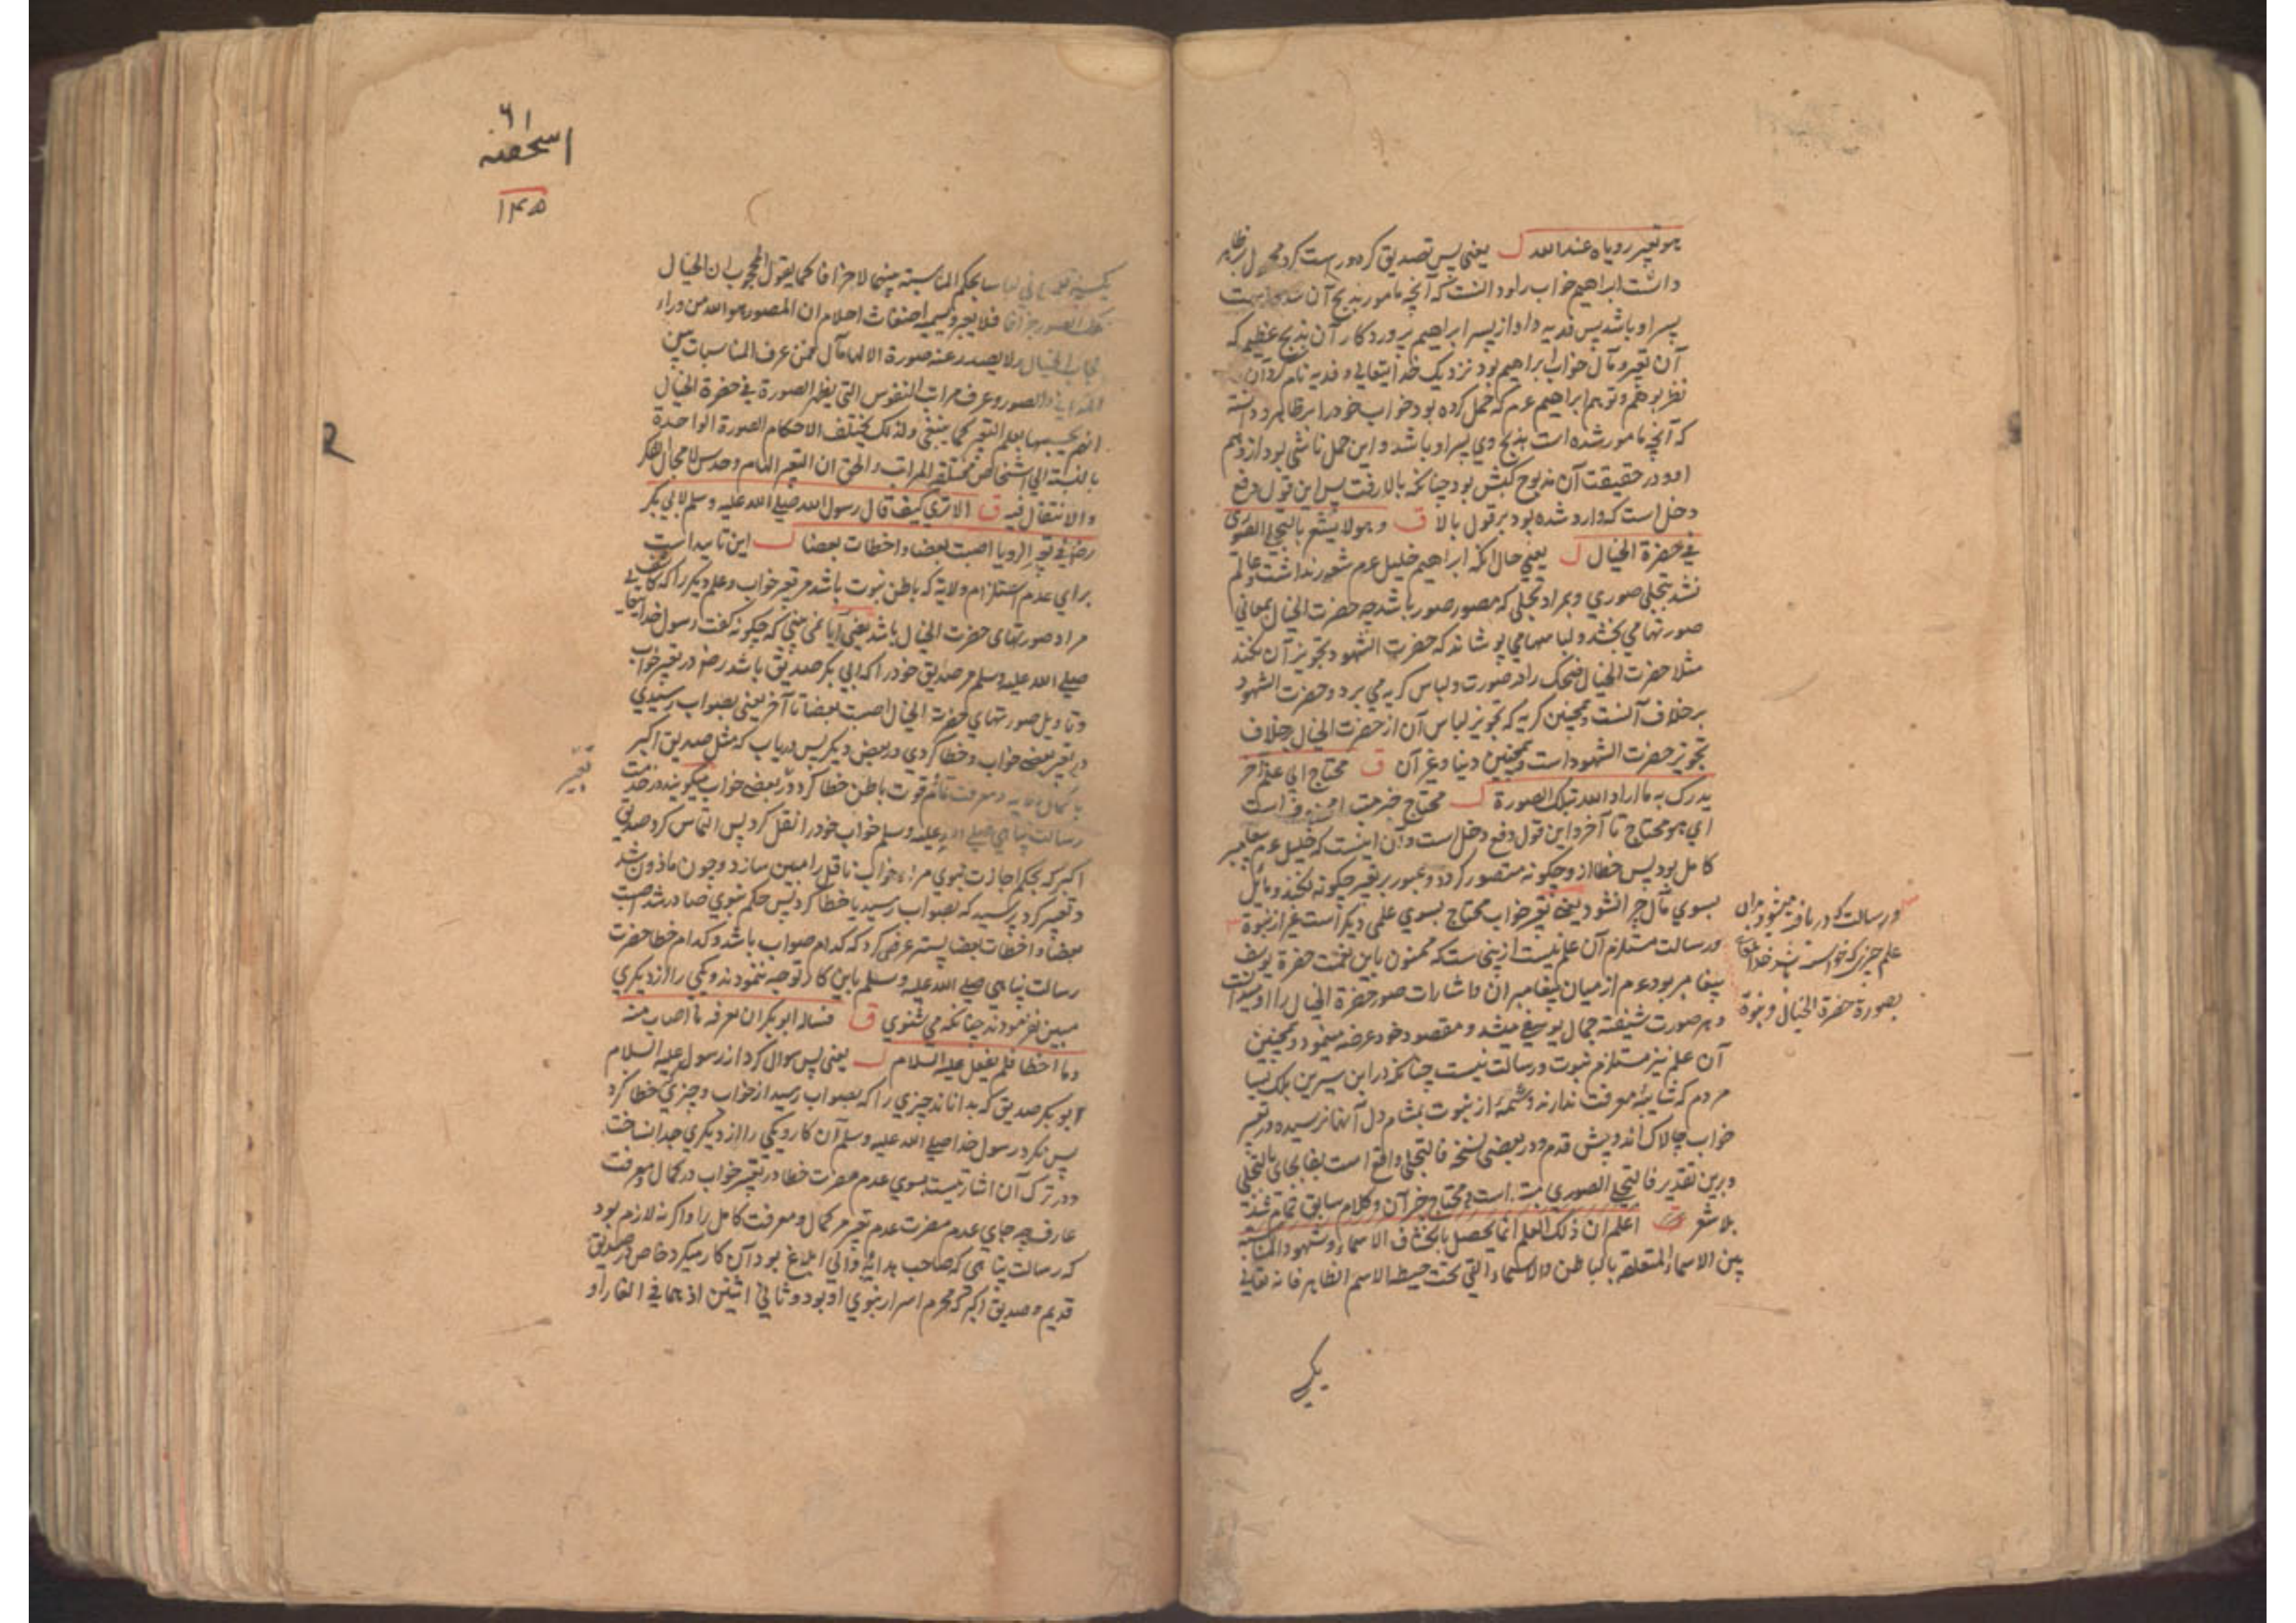 هو تعبير روياه عند الله ل يعني پس تصديق كرد و راست كرد محمول بر ظاهر
داشت ابراهيم خواب را و دانست كه آنچه مامور بذبح آن شده است
پسر او باشد پس فديه داد از پسر ابراهيم پروردكار آن بذبح عظيم كه
آن تعبير و مآل خواب ابراهيم بود نزديك خدايتعالي و فديه نام كرد آن
نظر بوهم و توهم ابراهيم عم كه حمل كرده بود خواب خود را بر ظاهر و دانسته
كه آنچه مامور شده است بذبح وي پسر او باشد و اين حمل ناشي بود از وهم
او و در حقيقت آن مذبوح كبش بود چنانكه بالا رفت پس اين قول دفع
دخل است كه وارد شده بود بر قول بالا ق و هو لا يشعر بالتجلي الصوري
في حضرة الخيال ل يعني حال انكه ابراهيم خليل عم شعور نداشت و عالم
نشد بتجلي صوري و مراد تجلي كه مصور صور باشد چه حضرت الخيال بمعاني
صورتها مي بخشد و لباسهامي پوشاند كه حضرت الشهود تجويز آن نكند
مثلا حضرت الخيال ضحك را در صورت و لباس كريه مي برد و حضرت الشهود
برخلاف آنست و همچنين كريه كه تجويز لباس آن از حضرت الخيال خلاف
تجويز حضرت الشهود است و همچنين دنيا و غير آن ق محتاج الي علم آخر
يدرك به ما اراد الله بتلك الصورة ل محتاج خبر مبتدا محذوف است
اي هو محتاج تا آخر و اين قول دفع دخل است و آن اينست كه خليل عم پيغامبر
كامل بود پس خطا از و چكونه متصور كردد و عبور بر تعبير چكونه نكند و مايل
بسوي مآل چرا نشود يعني تعبير خواب محتاج بسوي علمي ديكر است غير از نبوة
و رسالت مستلزم آن علم نيست ازينجاست كه ممنون باين نعمت حضرة يوسف
پيغامبر بود عم از ميان پيغامبران و اشارات صور حضرة الخيال را او ميدانست
و هر صورت شيفته جمال يوسفي ميشد و مقصود خود عرضه مينمود و همچنين
آن علم نيز مستلزم نبوت و رسالت نيست چنانكه در ابن سيرين بلك بسيا
مردم كه شايبه معرفت ندارند و شمه از نبوت بمشام دل آنها نرسيده در تعبير
خواب چالاك اند و پيش قدم و در بعضي نسخه فالتجلي واقع است بفا بجاي بالتجلي
و برين تقدير فالتجلي الصوري مبتدا است و محتاج خبر آن و كلام سابق تمام شد
بلا يشعر ق اعلم ان ذلك العلم انما يحصل بانكشاف الاسماء و شهود المناسبة
بين الاسماء المتعلقه بالباطن والاسماء التي تحت حيطة الاسم الظاهر فانه تعالي
و رسالت كه دريافته ميشود بدان
علم چيزي كه خواسته باشد خدايتعالي
بصورة حضرة الخيال و نبوة
يكي
٦١
اسحقيه
١٣٥
لباسا بحكم المناسبة بينهما لا جزافا كما يقول المحجوب ان الخيال
الصور جزافا فلا يعبر و يسميه اضغاث احلام ان المصور هو الله من وراء
حجاب الخيال و لا يصدر عنه صورة الا لها مآل فمن عرف المناسبات بين
والصور و عرف مراتب النفوس التي يظهر الصورة في حضرة الخيال
بحسبها يعلم التعبير كما ينبغي ولذلك يختلف الاحكام الصورة الواحدة
بالنسبة الي اشخاص مختلفه المراتب و الحق ان التعبير الهام و حدس لا مجال للفكر
والانتقال فيه ق الا تري كيف قال رسول الله صلي الله عليه و سلم لابي بكر
رض في تعبير الرويا اصبت بعضا و اخطات بعضا ل اين تاييد است
براي عدم استلزام ولاية كه باطن نبوت باشد مر تعبير خواب و علم ديكر را كه كاشف
مراد صورتهاي حضرت الخيال باشد يعني آيا نمي بيني كه چكونه كفت رسول خدايتعالي
صلي الله عليه وسلم مر صديق خود را كه ابي بكر صديق باشد رض در تعبير خواب
و تاويل صورتهاي حضرت الخيال اصبت بعضا تا آخر يعني بصواب رسيدي
در تعبير بعض خواب و خطا كردي در بعض ديكر پس درياب كه مثل صديق اكبر
تعبير
با كمال ولايه و معرفت قائم قوت باطن خطا كرد در بعض خواب ميكويند در خدمت
رسالت پناهي صلي الله عليه وسلم خواب خود را نقل كرد پس التماس كرد صديق
اكبر كه بحكم اجازت نبوي مراد خواب ناقل را مبين سازد و چون ماذون شد
و تعبير كرد پرسيد كه بصواب رسيد يا خطا كرد پس حكم نبوي صادر شد اصبت
بعضا و اخطات بعضا پستر عرض كرد كه كدام صواب باشد و كدام خطا حضرت
رسالت پناهي صلي الله عليه وسلم باين كار توجه ننمودند و يكي را از ديكري
مبين نفرمودند چنانكه مي شنوي ق فساله ابو بكر ان يعرفه ما اصاب منه
و ما اخطا فلم يفعل عليه السلام ل يعني پس سوال كرد از رسول عليه السلام
ابو بكر صديق كه بداناند چيزي را كه بصواب رسيد از خواب و چيزي كه خطا كرد
پس نكرد رسول خدا صلي الله عليه وسلم آن كار و يكي را از ديكري جدا نساخت
و در ترك آن اشارتيست بسوي عدم مضرت خطا در تعبير خواب در كمال معرفت
عارف چه جاي عدم مضرت عدم تعبير مر كمال و معرفت كامل را و اكر نه لازم بود
كه رسالت پناهي كه صاحب هدايه و الي ابلاغ بود آن كار ميكرد خاص در صديق
قديم و صديق اكبر كه محرم اسرار نبوي او بود و ثاني اثنين اذ هما في الغار او